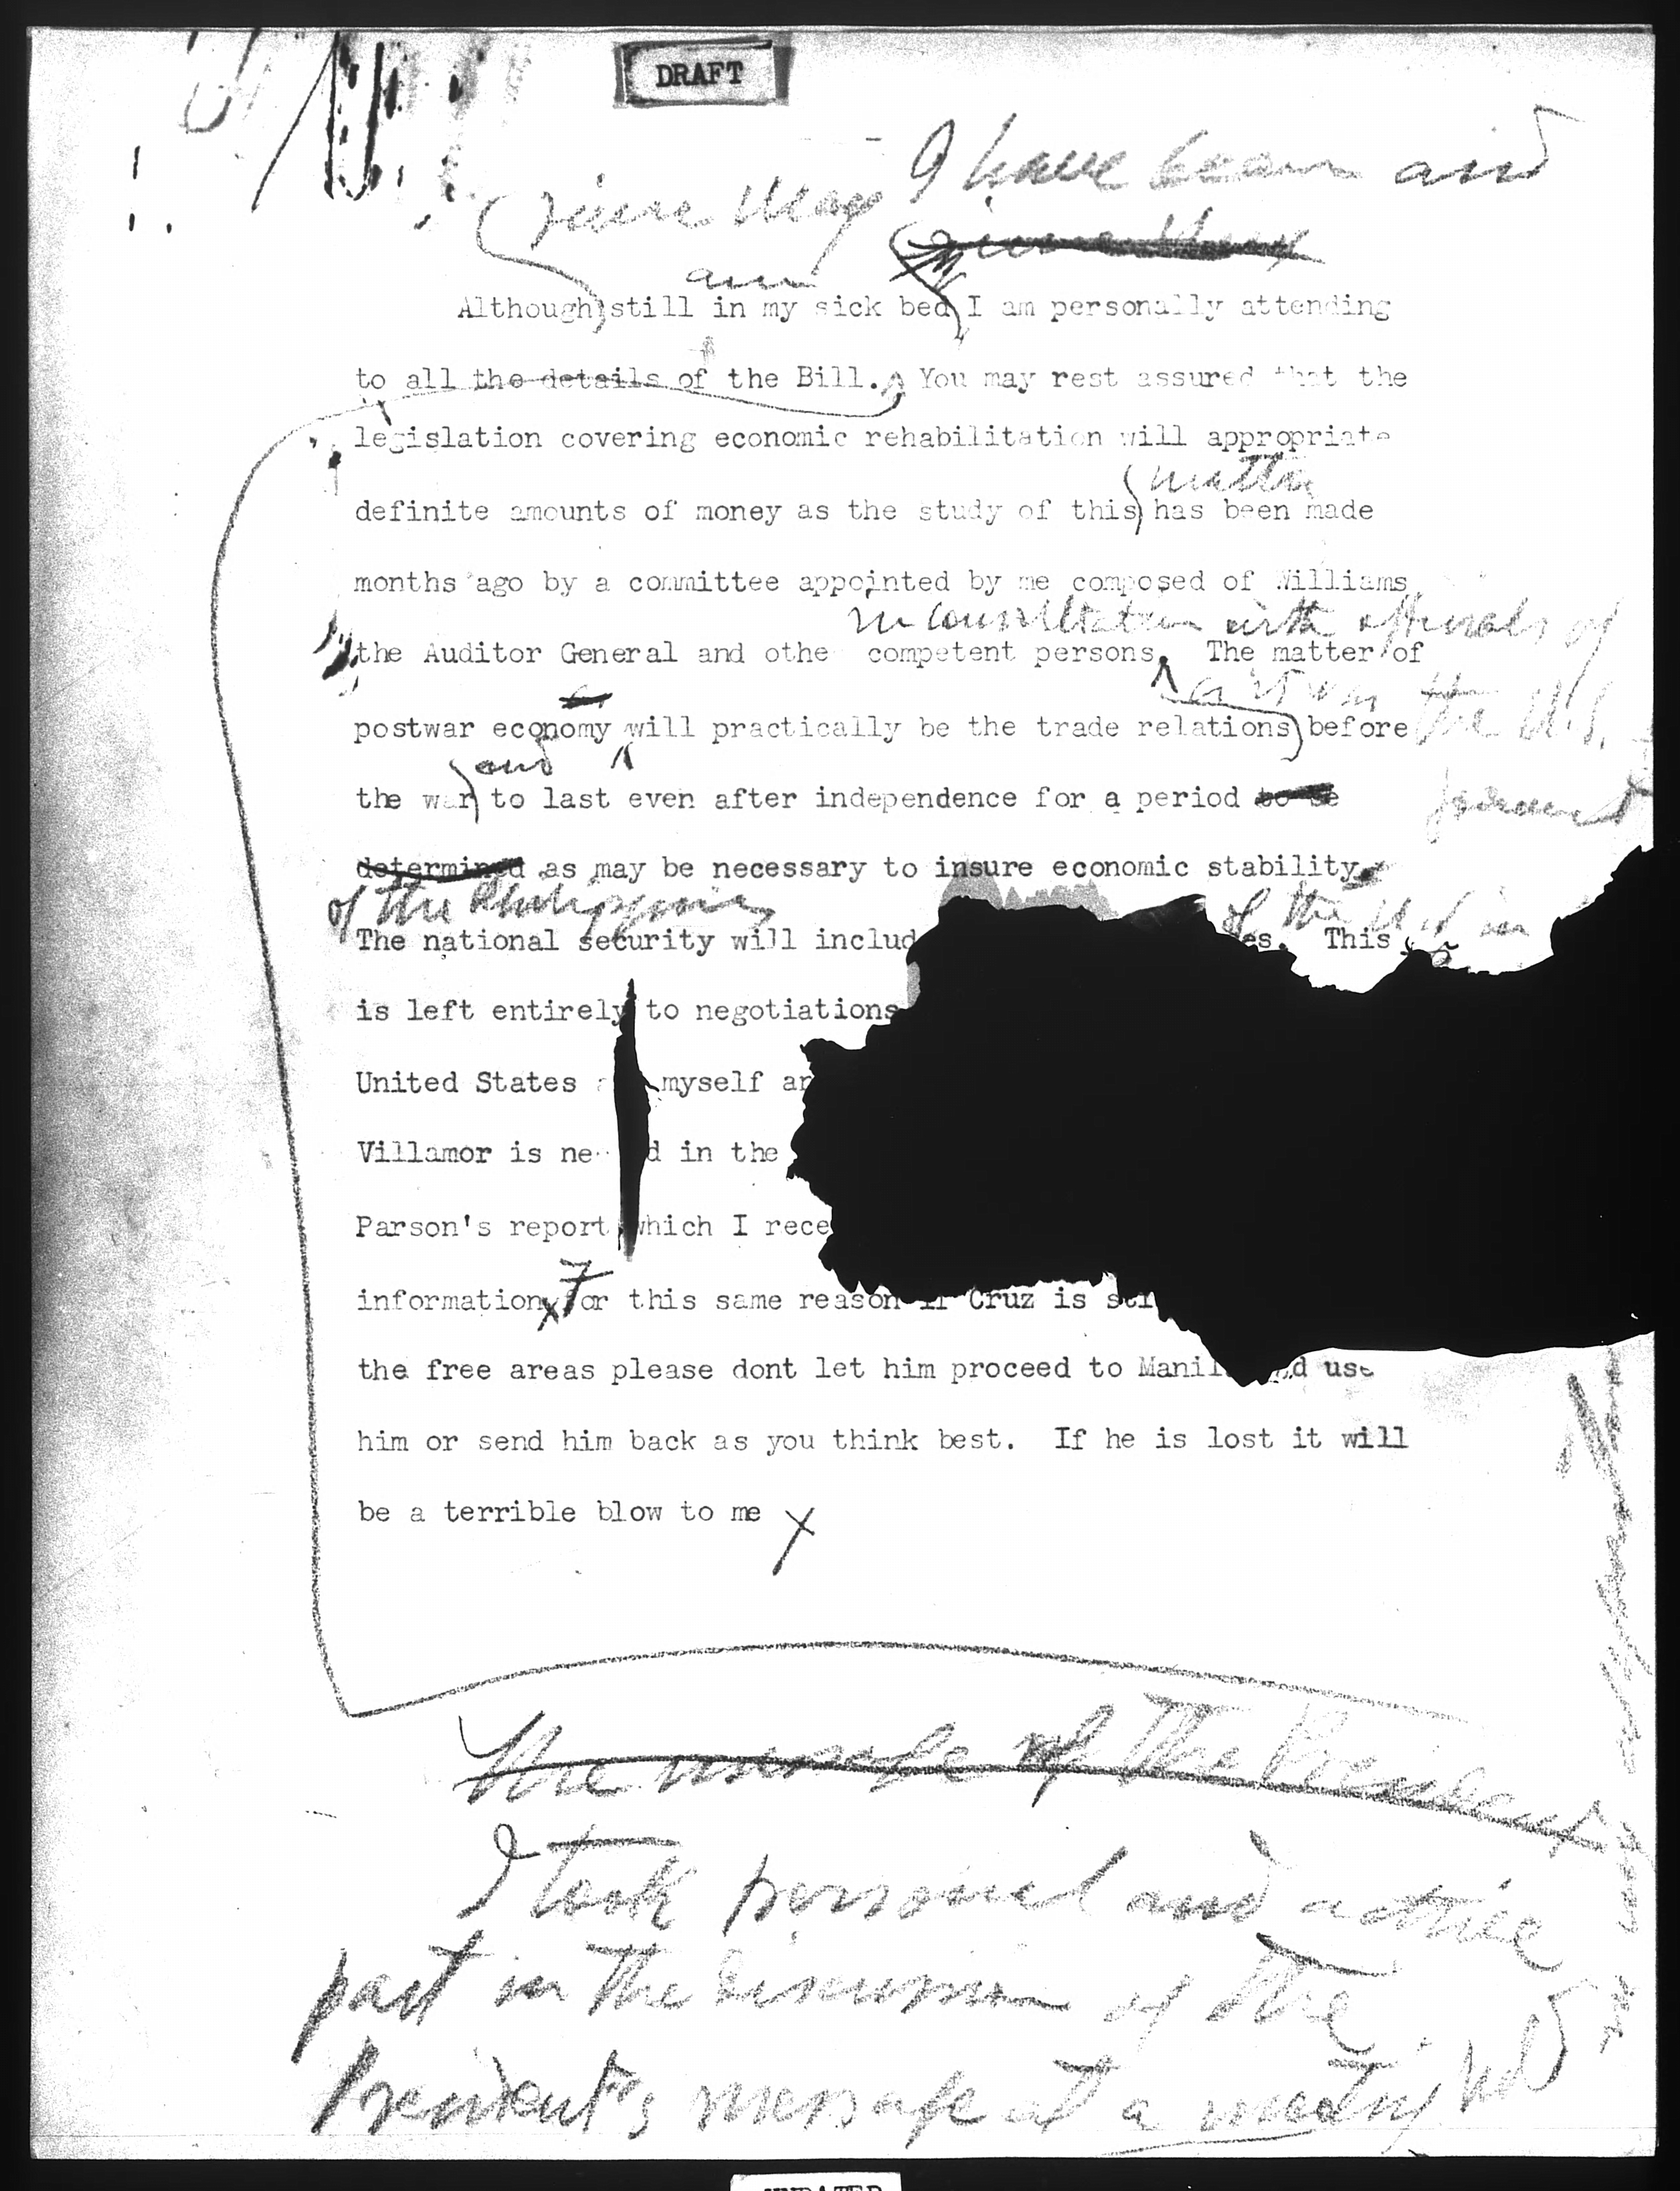 DRAFT
I have been and
since May
am
Although still in my sick bed I am personally attending
to all the details of the Bill. You may rest assured that the
legislation covering economic rehabilitation will appropriate
matter
definite amounts of money as the study of this has been made
months ago by a committee appointed by me composed of Williams
in consultation with officials of
the Auditor General and othe competent persons. The matter of
as it was the U.S.
postwar economy will practically be the trade relations before
and
the war to last even after independence for a period to be
determined as may be necessary to insure economic stability
of the Philippines of the U.S. in
The national security will includ es. This
is left entirely to negotiations
United States myself
Villamor is ne d in the
Parson's report which I rece
information For this same reason if Cruz is
the free areas please dont let him proceed to Manil d use
him or send him back as you think best. If he is lost it will
be a terrible blow to me
the message of the President
I took personal and active
part in the discussion of the
President's message at a meeting held